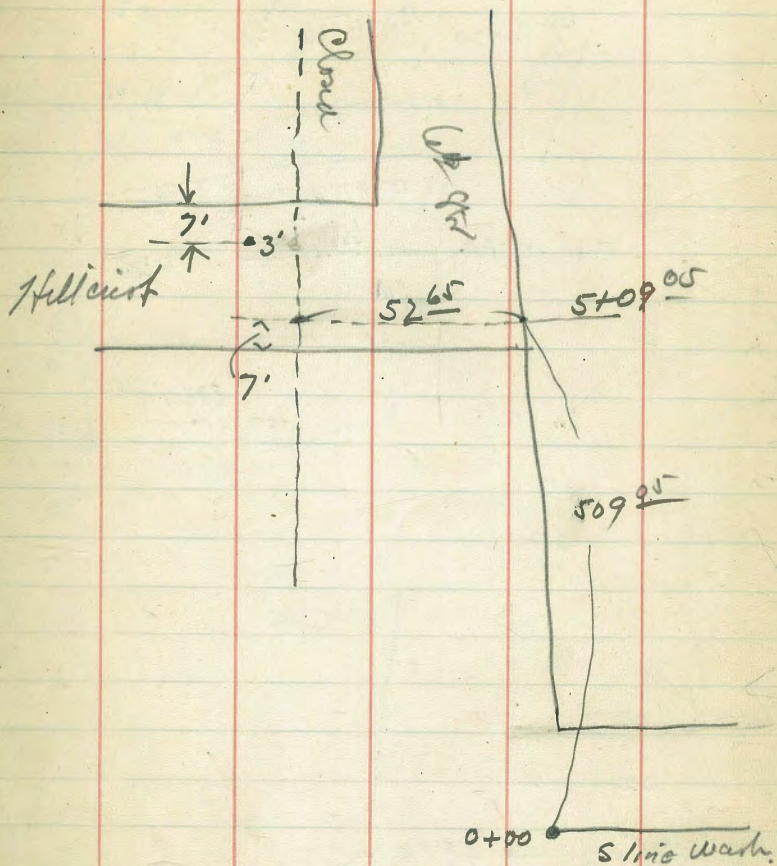 Closed
7'
3'
Hillcrest
52 65
5+09 05
7'
509 05
0+00
S line Wash.